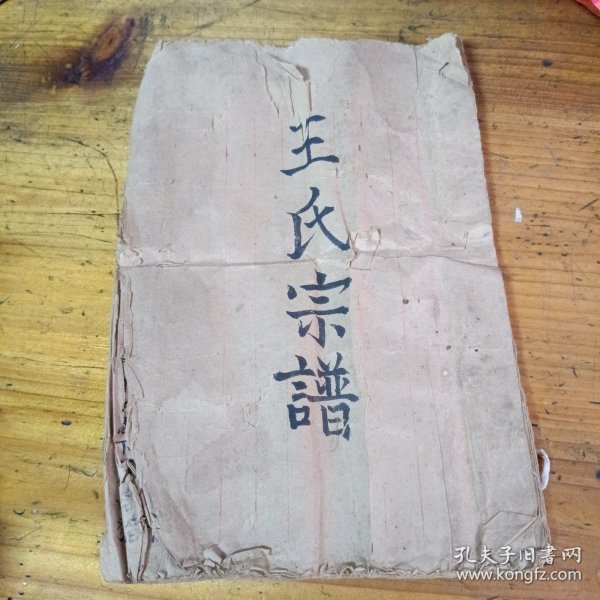 王氏宗譜
孔夫子旧书网
www.kongfz.com